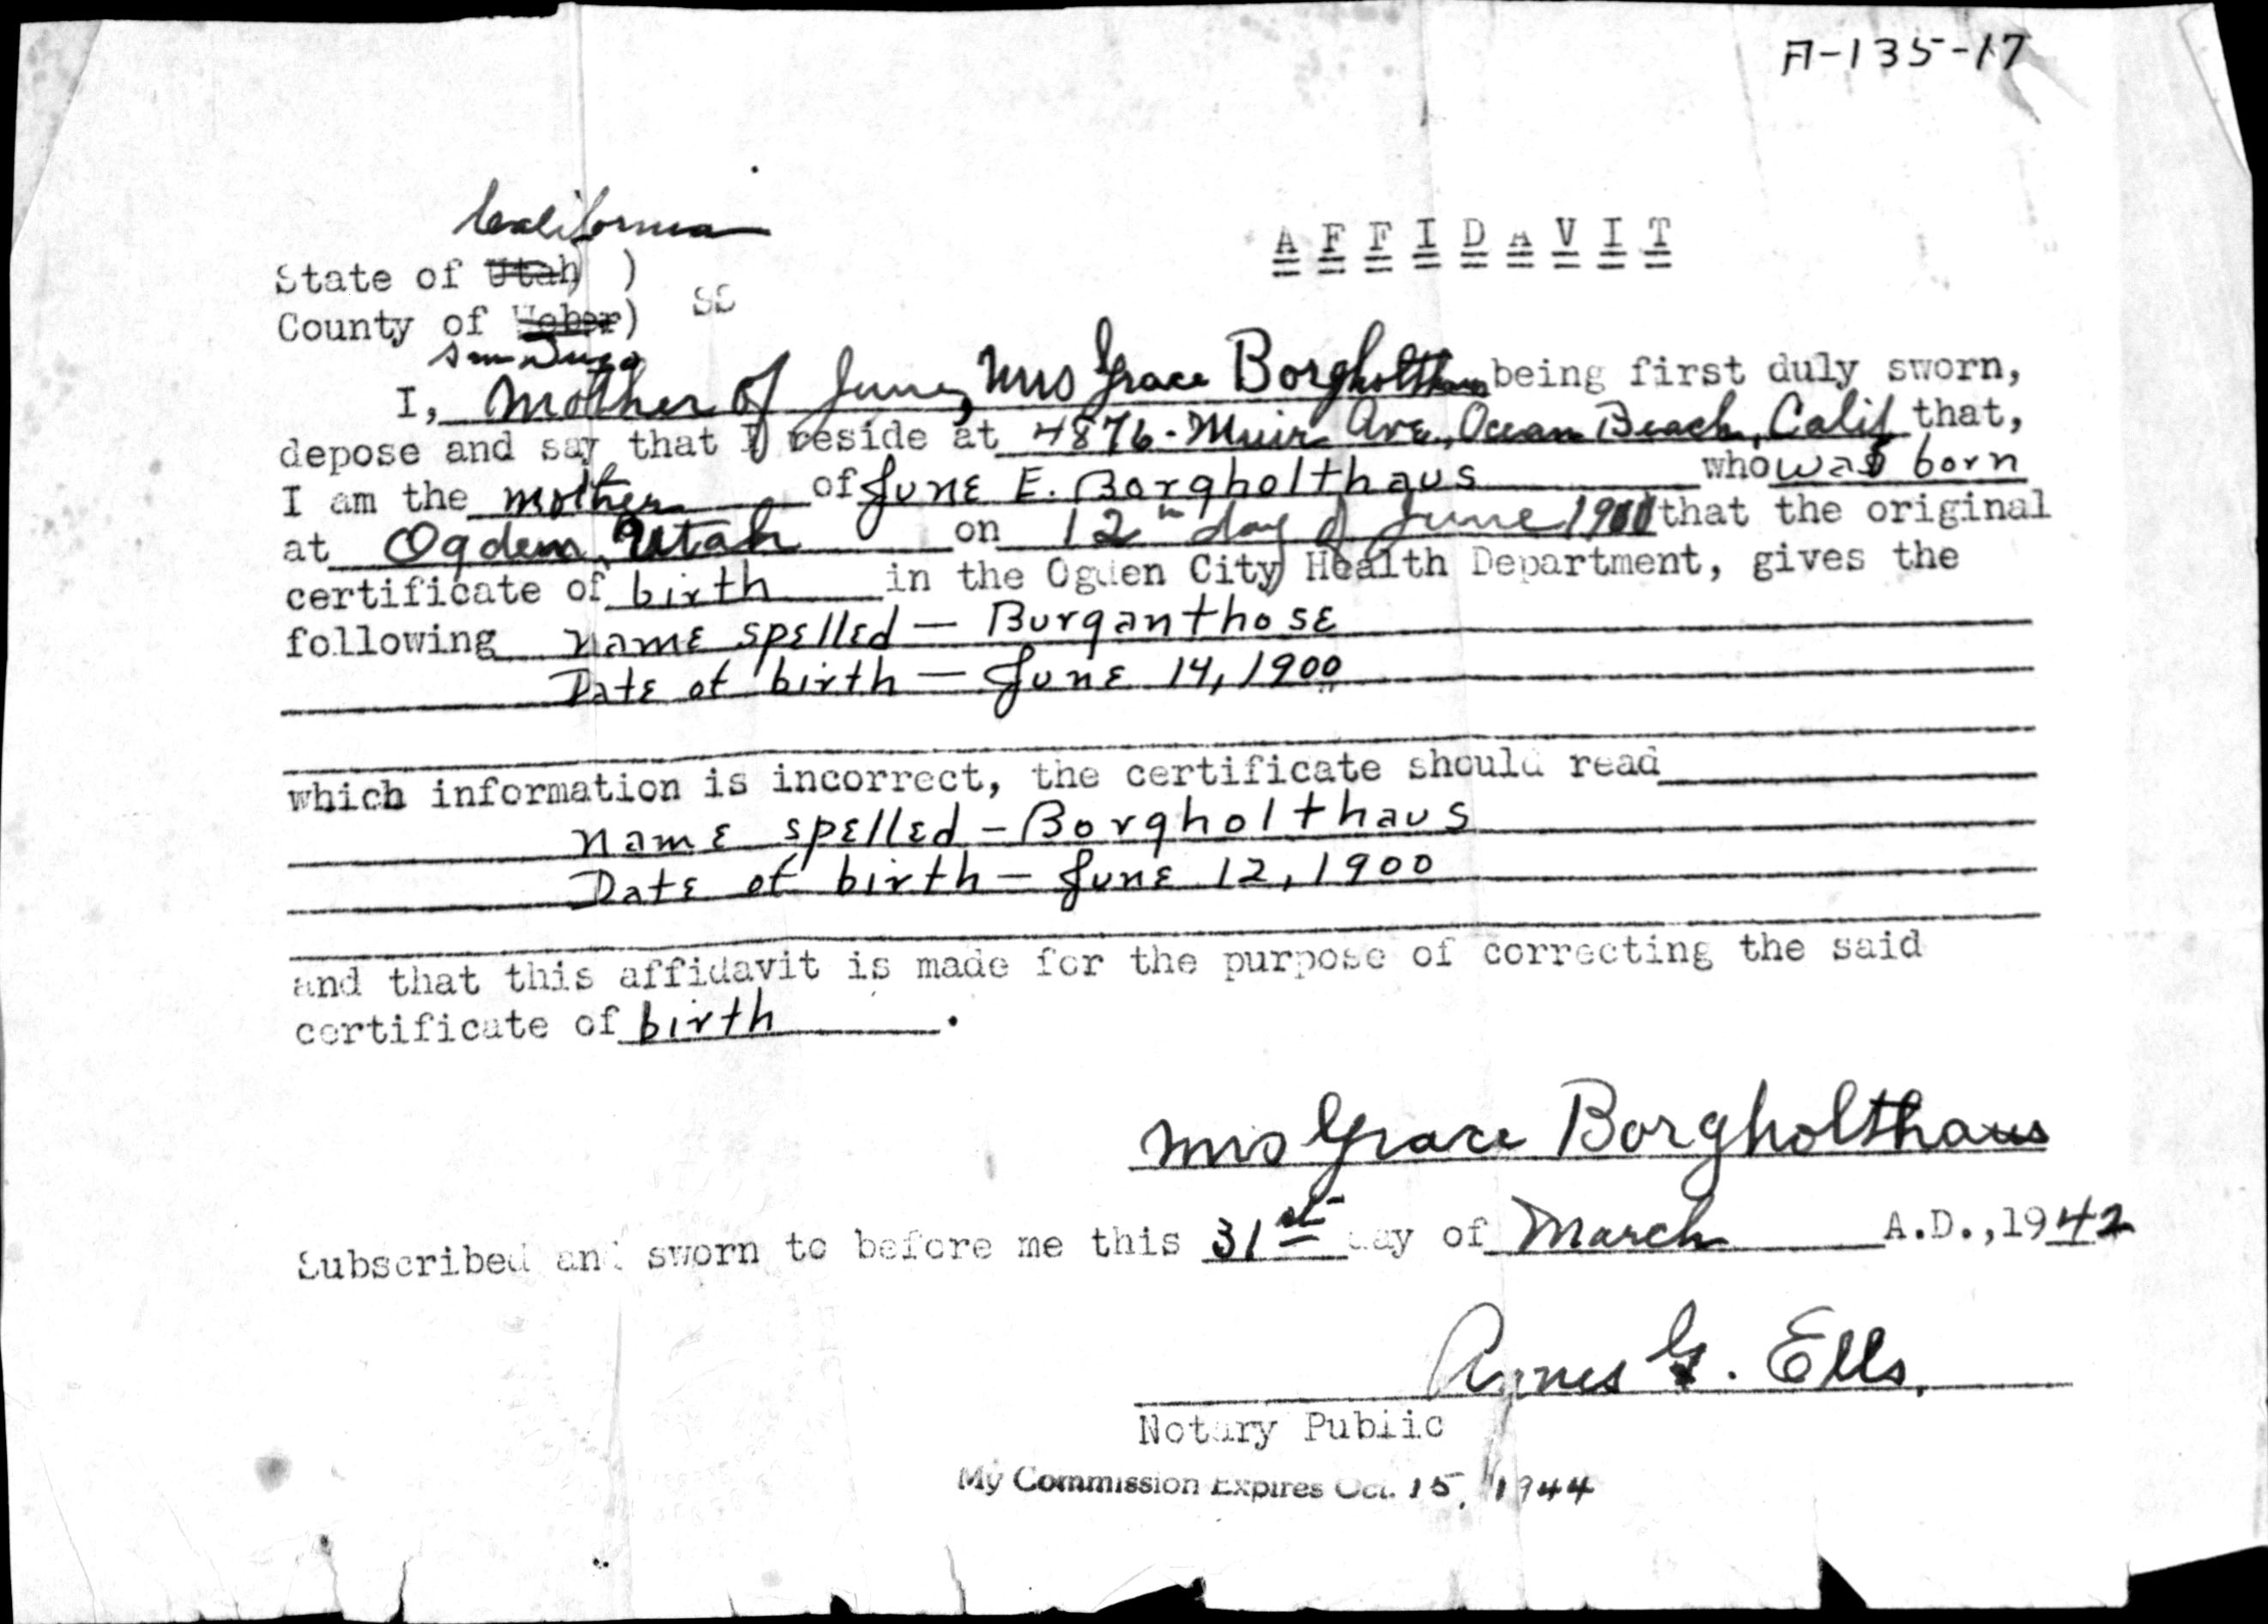 A-135-17
California
A F F I D A V I T
State of Utah )
SS
County of Weber)
San Diego
I, Mother of June, Mrs Grace Borgholthaus being first duly sworn,
depose and say that I reside at 4876-Muir Ave, Ocean Beach, Calif that,
I am the mother of June E. Borgholthaus who was born
at Ogden, Utah on 12th day of June that the original
certificate of birth in the Ogden City Health Department, gives the
following name spelled — Burganthose
Date of birth — June 14, 1900
which information is incorrect, the certificate should read
name spelled - Borgholthaus
Date of birth - June 12, 1900
and that this affidavit is made for the purpose of correcting the said
certificate of birth .
Mrs Grace Borgholthaus
Subscribed and sworn to before me this 31st day of March A.D., 1942
Agnes G. Ells.
Notary Public
My Commission Expires Oct. 15, 1944